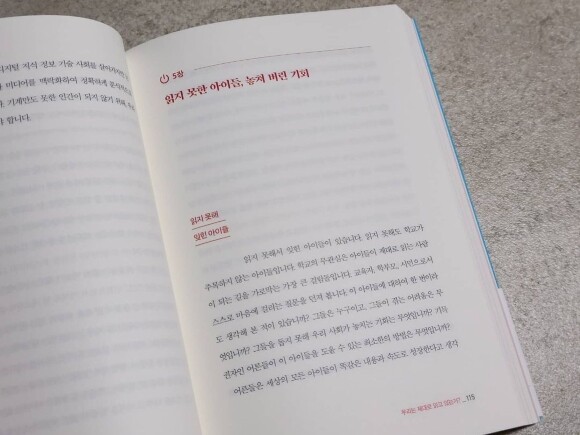 지털 지식 정보 기술 사회를 살아가려면
미디어를 맥락화하여 정확하게 분석하
기계만도 못한 인간이 되지 않기 위해, 우리
합니다.
5장
읽지 못한 아이들, 놓쳐 버린 기회
읽지 못해
잊힌 아이들
읽지 못해서 잊힌 아이들이 있습니다. 읽지 못해도 학교가
주목하지 않는 아이들입니다. 학교의 무관심은 아이들이 제대로 읽는 사람
이 되는 길을 가로막는 가장 큰 걸림돌입니다. 교육자, 학부모, 시민으로서
스스로 마음에 걸리는 질문을 던져 봅니다. 이 아이들에 대하여 한 번이라
도 생각해 본 적이 있습니까? 그들은 누구이고, 그들이 겪는 어려움은 무
엇입니까? 그들을 돕지 못해 우리 사회가 놓치는 기회는 무엇입니까? 기득
권자인 어른들이 이 아이들을 도울 수 있는 최소한의 방법은 무엇입니까?
어른들은 세상의 모든 아이들이 똑같은 내용과 속도로 성장한다고 생각
우리는 제대로 읽고 있는가? _ 115